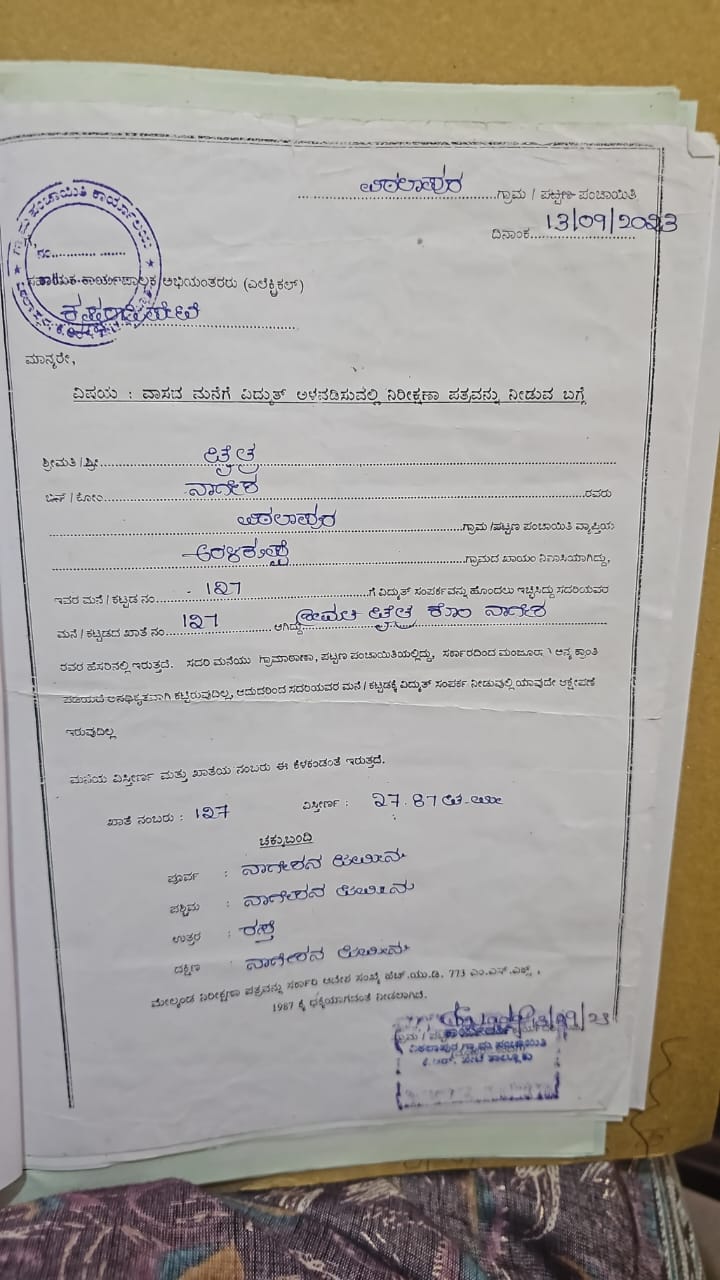 ವಿಠಲಾಪುರ ಗ್ರಾಮ / ಪಟ್ಟಣ ಪಂಚಾಯಿತಿ
ದಿನಾಂಕ 13/09/2023
ಗ್ರಾಮ ಪಂಚಾಯಿತಿ ಕಾರ್ಯಾಲಯ
ಸಹಾಯಕ ಕಾರ್ಯಪಾಲಕ ಅಭಿಯಂತರರು (ಎಲೆಕ್ಟ್ರಿಕಲ್)
ಮಾನ್ಯರೇ,
ವಿಷಯ : ವಾಸದ ಮನೆಗೆ ವಿದ್ಯುತ್ ಅಳವಡಿಸುವಲ್ಲಿ ನಿರೀಕ್ಷಣಾ ಪತ್ರವನ್ನು ನೀಡುವ ಬಗ್ಗೆ
ಶ್ರೀಮತಿ / ಶ್ರೀ ಚೈತ್ರ
ಬಿನ್ / ಕೋಂ ನಾಗೇಶ ರವರು
ವಿಠಲಾಪುರ ಗ್ರಾಮ / ಪಟ್ಟಣ ಪಂಚಾಯಿತಿ ವ್ಯಾಪ್ತಿಯ
ಗ್ರಾಮದ ಖಾಯಂ ನಿವಾಸಿಯಾಗಿದ್ದು,
ಇವರ ಮನೆ / ಕಟ್ಟಡ ನಂ 127 ಗೆ ವಿದ್ಯುತ್ ಸಂಪರ್ಕವನ್ನು ಹೊಂದಲು ಇಚ್ಛಿಸಿದ್ದು ಸದರಿಯವರ
ಮನೆ / ಕಟ್ಟಡದ ಖಾತೆ ನಂ 127 ಆಗಿದ್ದು ಶ್ರೀಮತಿ ಚೈತ್ರ ಕೋಂ ನಾಗೇಶ
ರವರ ಹೆಸರಿನಲ್ಲಿ ಇರುತ್ತದೆ. ಸದರಿ ಮನೆಯು ಗ್ರಾಮಠಾಣಾ, ಪಟ್ಟಣ ಪಂಚಾಯಿತಿಯಲ್ಲಿದ್ದು, ಸರ್ಕಾರದಿಂದ ಮಂಜೂರು \ ಅನ್ಯ ಕ್ರಾಂತಿ
ಪಡೆಯದೆ ಅನಧಿಕೃತವಾಗಿ ಕಟ್ಟಿರುವುದಿಲ್ಲ, ಆದುದರಿಂದ ಸದರಿಯವರ ಮನೆ / ಕಟ್ಟಡಕ್ಕೆ ವಿದ್ಯುತ್ ಸಂಪರ್ಕ ನೀಡುವಲ್ಲಿ ಯಾವುದೇ ಆಕ್ಷೇಪಣೆ
ಇರುವುದಿಲ್ಲ
ಮನೆಯ ವಿಸ್ತೀರ್ಣ ಮತ್ತು ಖಾತೆಯ ನಂಬರು ಈ ಕೆಳಕಂಡಂತೆ ಇರುತ್ತದೆ.
ಖಾತೆ ನಂಬರು : 127 ವಿಸ್ತೀರ್ಣ : 27.87 ಚ.ಮೀ
ಚಕ್ಕುಬಂದಿ
ಪೂರ್ವ : ನಾಗೇಶನ ಜಮೀನು
ಪಶ್ಚಿಮ : ನಾಗೇಶನ ಜಮೀನು
ಉತ್ತರ : ರಸ್ತೆ
ದಕ್ಷಿಣ : ನಾಗೇಶನ ಜಮೀನು
ಮೇಲ್ಕಂಡ ನಿರೀಕ್ಷಣಾ ಪತ್ರವನ್ನು ಸರ್ಕಾರಿ ಆದೇಶ ಸಂಖ್ಯೆ ಹೆಚ್.ಯು.ಡಿ. 773 ಎಂ.ಎನ್.ಎಕ್ಸ್,
1987 ಕ್ಕೆ ಧಕ್ಕೆಯಾಗದಂತೆ ನೀಡಲಾಗಿದೆ.
13/09/23
ವಿಠಲಾಪುರ ಗ್ರಾಮ ಪಂಚಾಯಿತಿ
ಕೆ.ಆರ್. ಪೇಟೆ ತಾಲ್ಲೂಕು